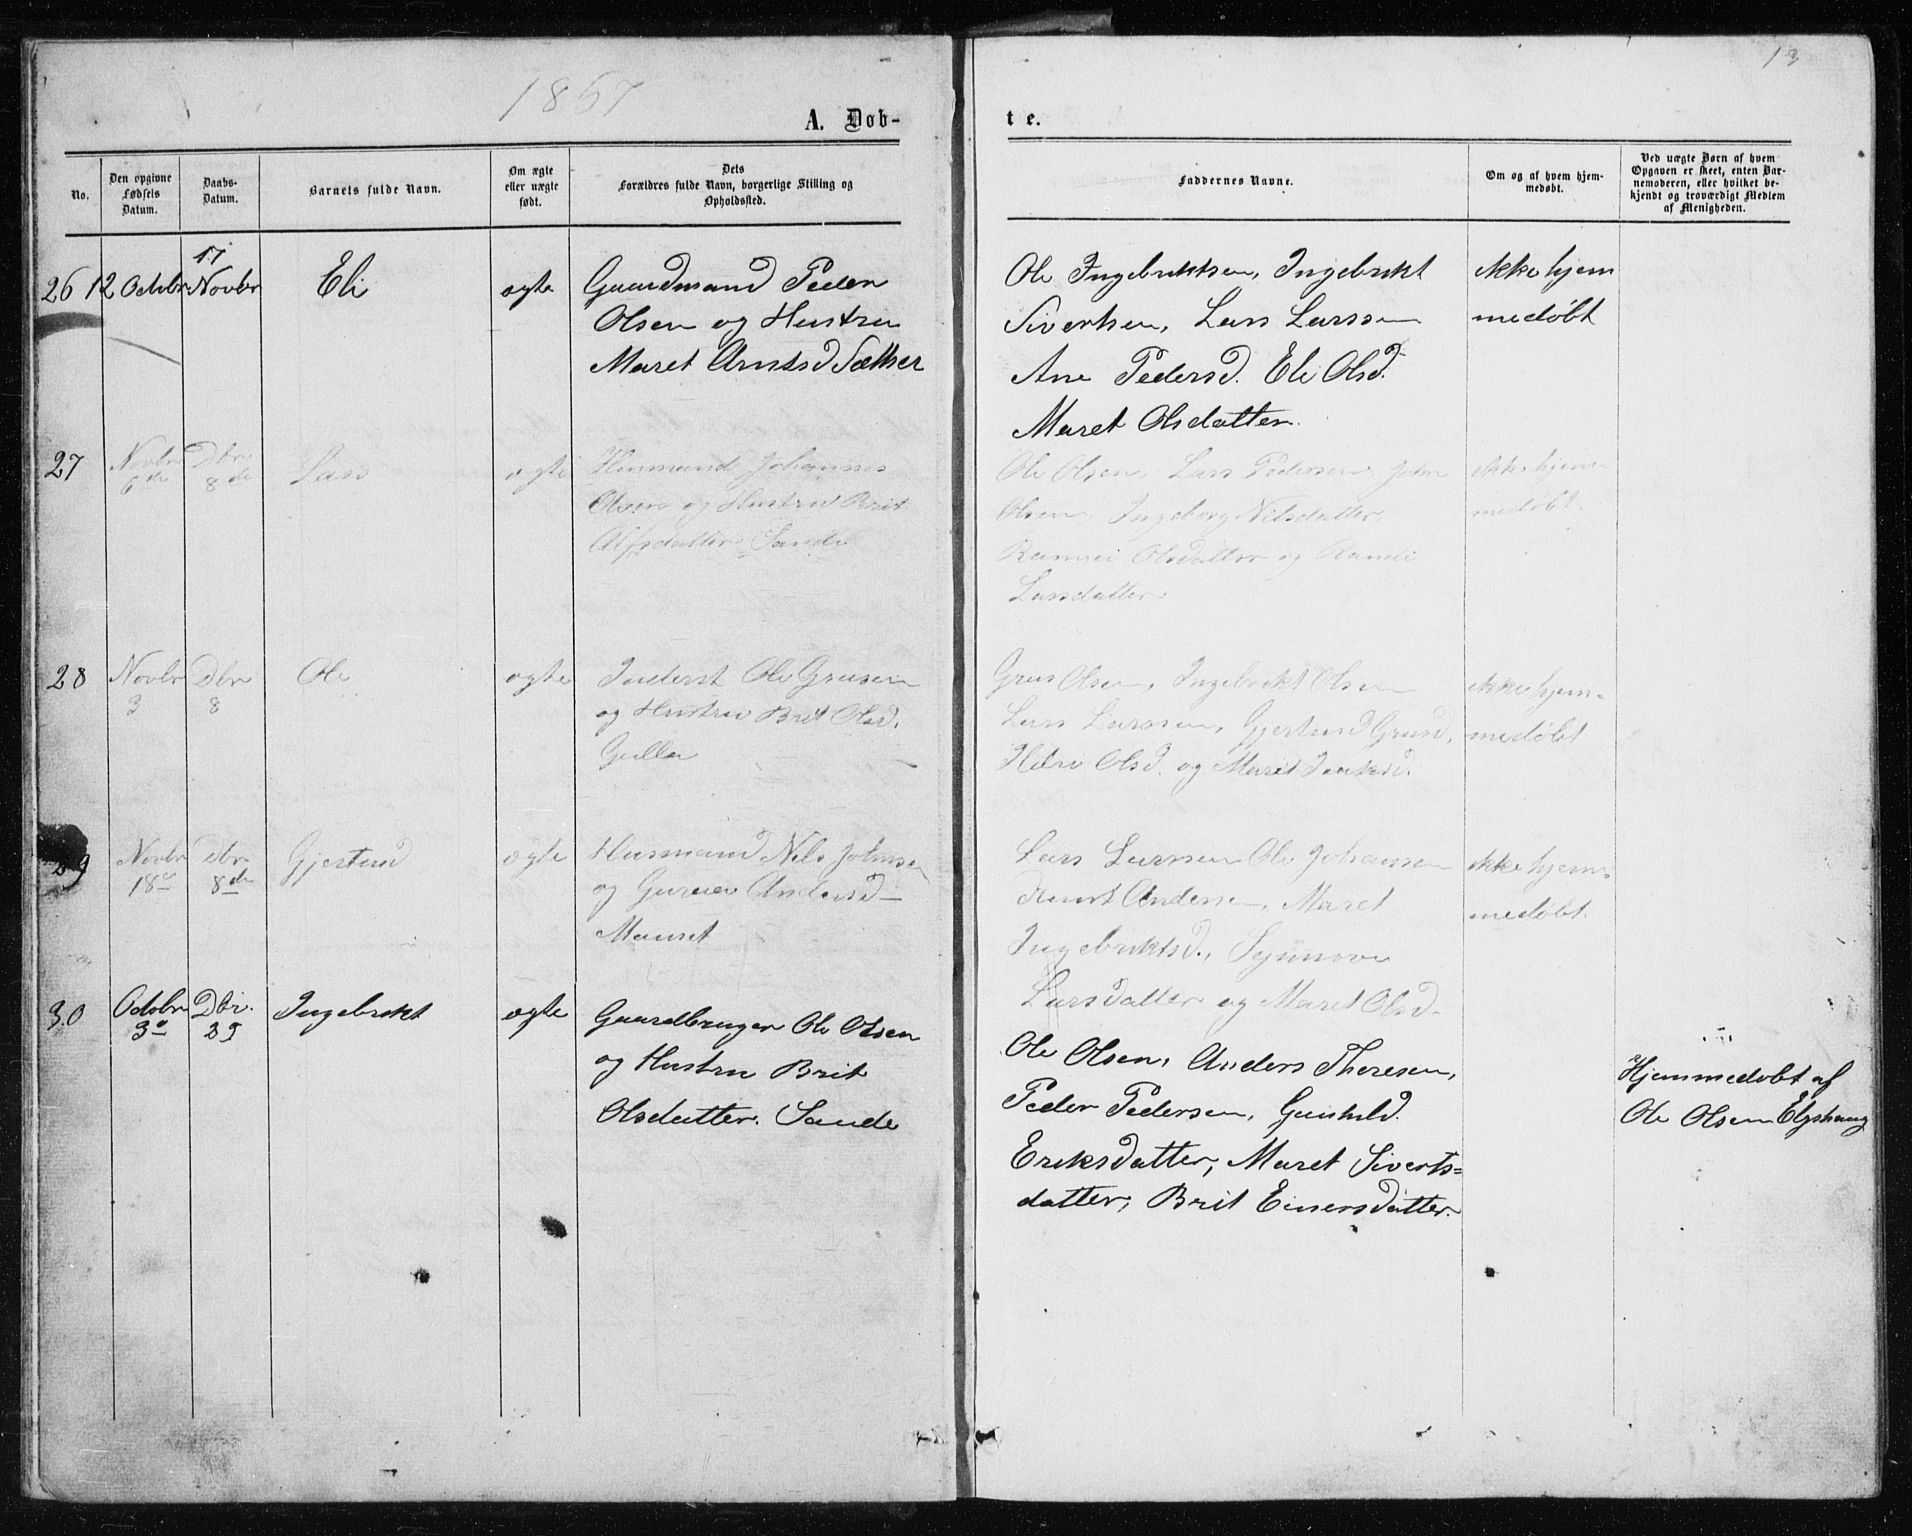 1867
13
A. Døb-
t e.
No.
Den opgivne
Fødsels
Datum.
Daabs-
Datum.
Barnets fulde Navn.
Om ægte
eller uægte
født.
Dets
Forældres fulde Navn, borgerlige Stilling og
Opholdssted.
Faddernes Navne.
Om og af hvem hjem-
medøbt.
Ved uægte Børn af hvem
Opgaven er skeet, enten Bar-
nemoderen, eller hvilket be-
kjendt og troværdigt Medlem
af Menigheden.
26 12 Octobr 17 Novbr Eli ægte
Gaardmand Peder
Olsen og Hustru
Maret Arntsd Sæther
Ole Ingebriktsen, Ingebrikt
Sivertsen, Lars Larssen
Ane Pedersd. Eli Olsd.
Maret Olsdatter.
ikke hjem
medøbt
27 Novbr 6de Dbr 8de Lars ægte
Husmand Johannes
Olsen og Hustru Brit
Alfsdatter Sande
Ole Olsen, Lars Pedersen, John
Olsen, Ingeborg Nilsdatter,
Rannei Olsdatter og Randi
Larsdatter
ikke hjem-
medøbt.
28 Novbr 3 Dbr 8 Ole ægte
Inderst Ole Grusen
og Hustru Brit Olsd.
Gulla
Grus Olsen, Ingebrikt Olsen
Lars Larssen, Gjertrud Grusd,
Olsd. og Maret
ikke hjem-
medøbt
29 Novbr 18de Dbr 8de Gjertrud ægte
Husmand Nils Johnsen
og Andersd
Mauset
Lars Larssen Ole Johansen
Knut Andersen, Maret
Ingebriktsd., Synnove
Larsdatter og Maret Olsd.
ikke hjem-
medøbt.
30 Octobr 30 Dbr. Ingebrikt ægte
Gaardbruger Ole Olsen
og Hustru Brit
Olsdatter. Sande
Ole Olsen, Anders Thoresen,
Peder Pedersen, Gunhild
Eriksdatter, Maret Siverts=
datter, Brit Einersdatter.
Hjemmedøbt af
Ole Olsen Elgshaug